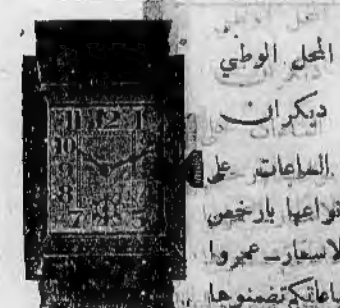 المحل الوطني
ديكران
الساعات على
نواعها بارخص
لاسعار - عمروا
ساعاتكم تضمنوها
11 12 1
10
9
8
7 5